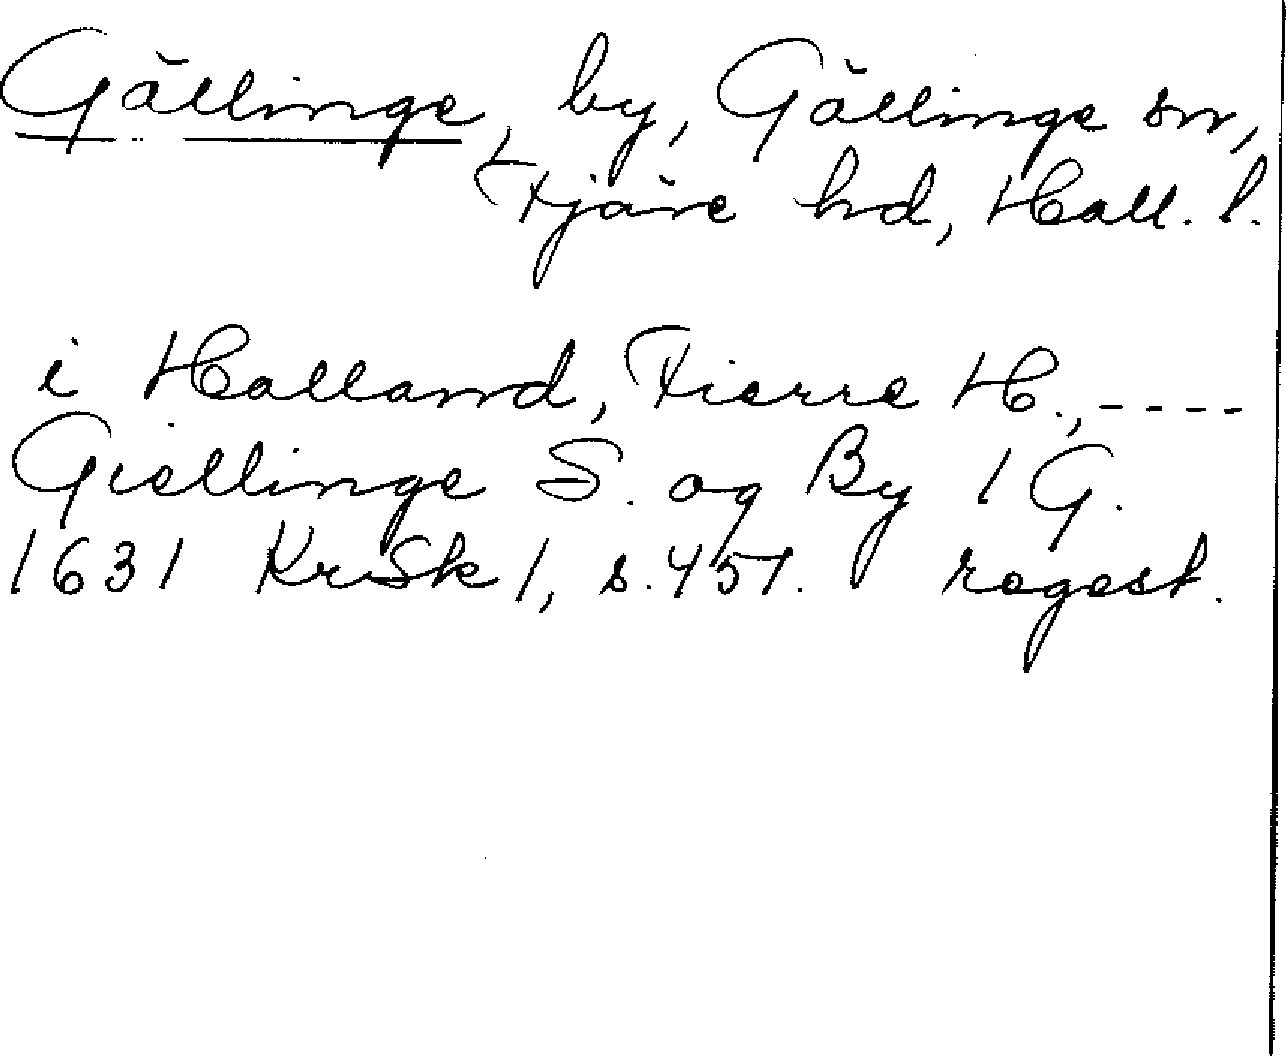 Gällinge, by, Gällinge sn,
Fjäre hd, Hall. l.
i Halland, Fierre H., ----
Giellinge S. og By 1 G.
1631 KrSk 1, s. 457. regest.